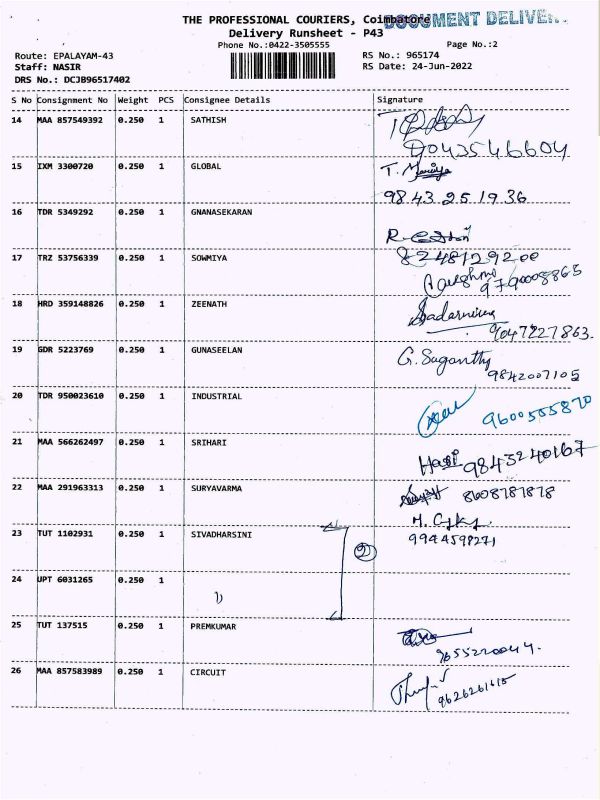 THE PROFESSIONAL COURIERS, Coimbatore
DOCUMENT DELIVE
Delivery Runsheet - P43
Phone No.:0422-3505555
Page No.:2
Route: EPALAYAM-43
RS No.: 965174
Staff: NASIR
RS Date: 24-Jun-2022
DRS No.: DCJB96517402
S No Consignment No Weight PCS Consignee Details Signature
14 MAA 857549392 0.250 1 SATHISH
9043546604
15 IXM 3300720 0.250 1 GLOBAL T.
9843251936
16 TDR 5349292 0.250 1 GNANASEKARAN
8248129200
17 TRZ 53756339 0.250 1 SOWMIYA
9790005865
18 HRD 359148826 0.250 1 ZEENATH
9047227863.
19 GDR 5223769 0.250 1 GUNASEELAN G. Suganthy
9842007105
20 TDR 950023610 0.250 1 INDUSTRIAL
9600555870
21 MAA 566262497 0.250 1 SRIHARI
Hari 9843240167
22 MAA 291963313 0.250 1 SURYAVARMA 8608787878
23 TUT 1102931 0.250 1 SIVADHARSINI 2
9944598271
24 UPT 6031265 0.250 1
25 TUT 137515 0.250 1 PREMKUMAR
9655220044.
26 MAA 857583989 0.250 1 CIRCUIT
9626261615